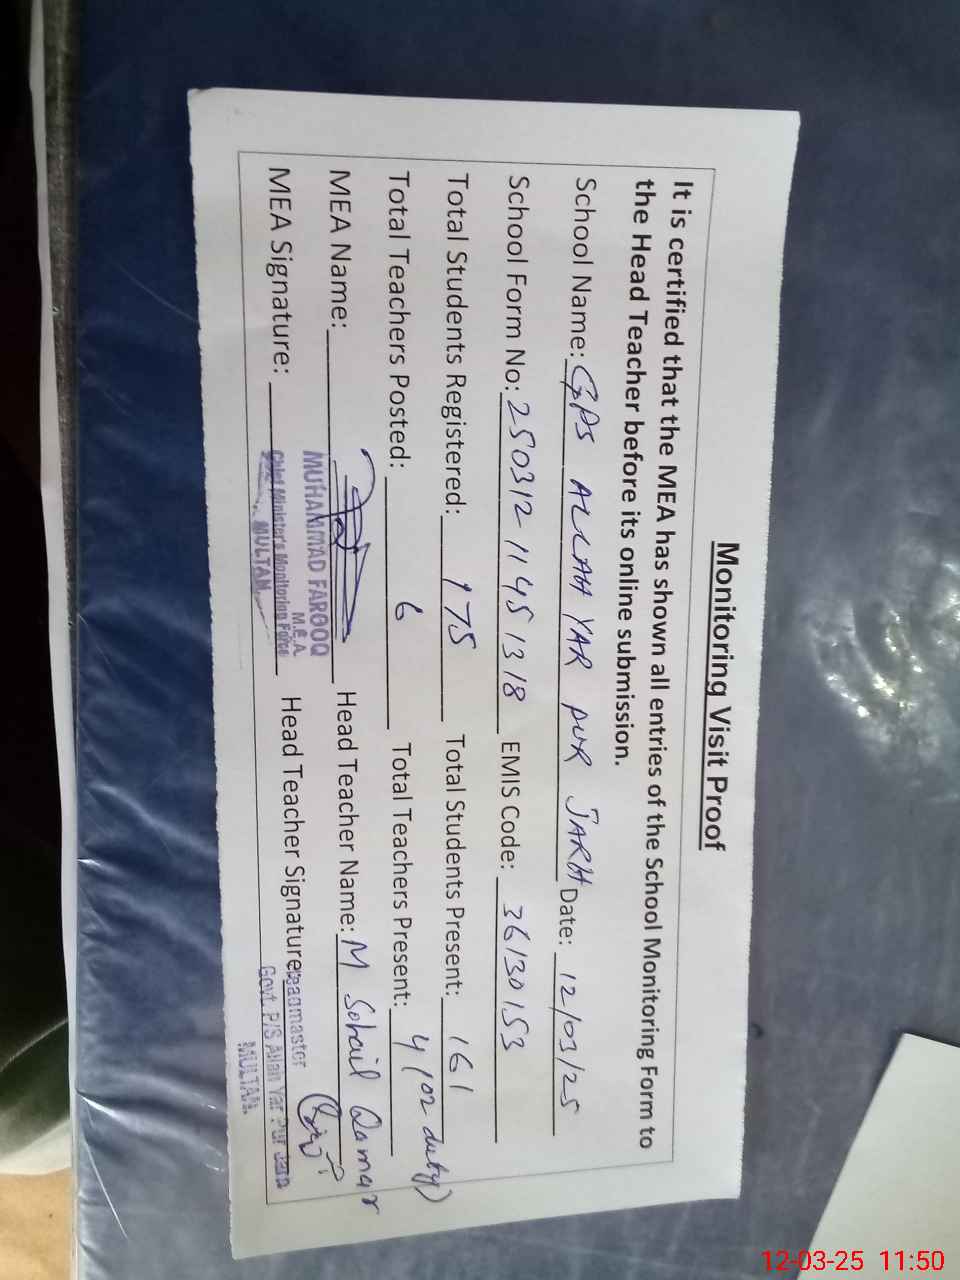 Monitoring Visit Proof
It is certified that the MEA has shown all entries of the School Monitoring Form to
the Head Teacher before its online submission.
School Name: GPS ALLAH YAR PUR JARH Date: 12/03/25
School Form No: 250312 11451318 EMIS Code: 36130153
Total Students Registered: 175 Total Students Present: 161
Total Teachers Posted: 6 Total Teachers Present: 4 (02 duty)
MEA Name: Head Teacher Name: M Sohail Qamar
MUHAMMAD FAROOQ
M.E.A.
MEA Signature: Chief Minister's Monitoring Force Head Teacher Signature: Headmaster
MULTAN. Govt. P/S Allah Yar Pur
MULTAN.
12-03-25 11:50